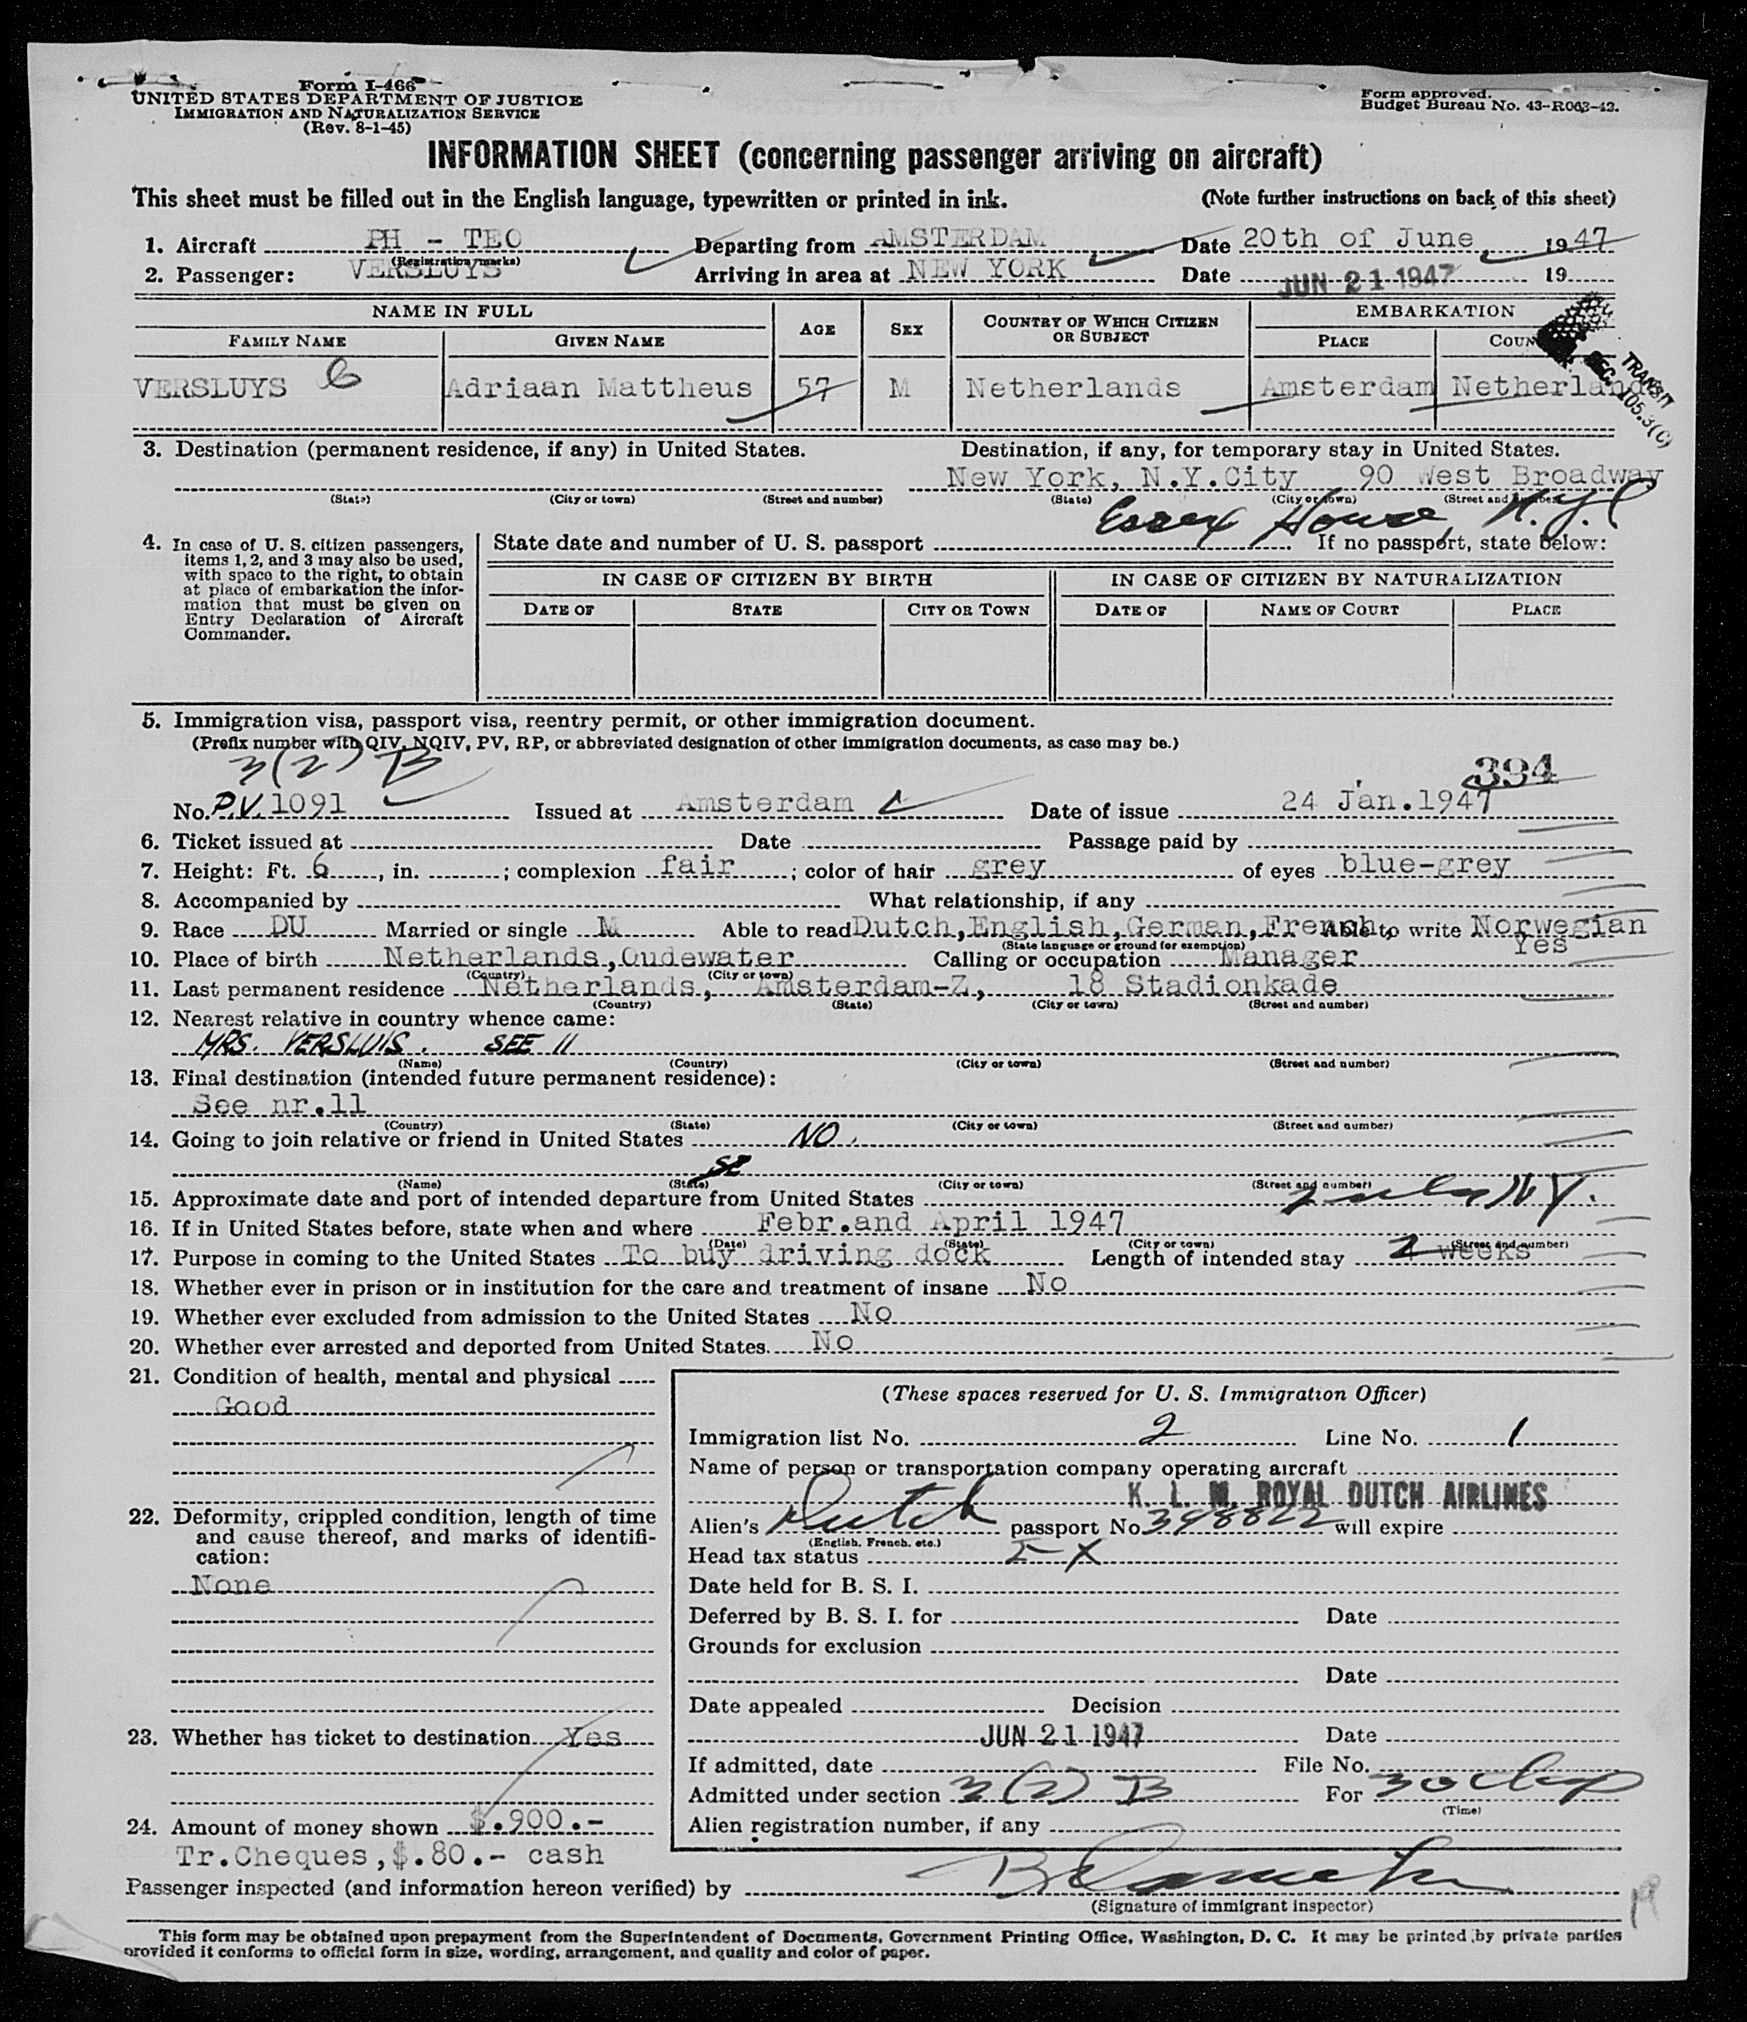 Form I-466
UNITED STATES DEPARTMENT OF JUSTICE
IMMIGRATION AND NATURALIZATION SERVICE
(Rev. 8-1-45)
Form approved.
Budget Bureau No. 43-R063-42.
INFORMATION SHEET (concerning passenger arriving on aircraft)
This sheet must be filled out in the English language, typewritten or printed in ink. (Note further instructions on back of this sheet)
1. Aircraft PH - TEO Departing from AMSTERDAM Date 20th of June 1947
(Registration marks)
2. Passenger: VERSLUYS Arriving in area at NEW YORK Date JUN 21 1947 19
NAME IN FULL AGE SEX COUNTRY OF WHICH CITIZEN OR SUBJECT EMBARKATION
FAMILY NAME GIVEN NAME PLACE COUN
TRANSIT
SEC. 105.3(C)
VERSLUYS Adriaan Mattheus 57 M Netherlands Amsterdam Netherlands
3. Destination (permanent residence, if any) in United States. Destination, if any, for temporary stay in United States.
New York, N.Y.City 90 West Broadway
(State) (City or town) (Street and number) (State) (City or town) (Street and number)
Essex House, N.Y.C
4. In case of U. S. citizen passengers, items 1, 2, and 3 may also be used, with space to the right, to obtain at place of embarkation the information that must be given on Entry Declaration of Aircraft Commander.
State date and number of U. S. passport If no passport, state below:
IN CASE OF CITIZEN BY BIRTH IN CASE OF CITIZEN BY NATURALIZATION
DATE OF STATE CITY OR TOWN DATE OF NAME OF COURT PLACE
5. Immigration visa, passport visa, reentry permit, or other immigration document.
(Prefix number with QIV, NQIV, PV, RP, or abbreviated designation of other immigration documents, as case may be.)
3(2) B 394
No. P.V. 1091 Issued at Amsterdam Date of issue 24 Jan.1947
6. Ticket issued at Date Passage paid by
7. Height: Ft. 6, in. ; complexion fair ; color of hair grey of eyes blue-grey
8. Accompanied by What relationship, if any
9. Race DU Married or single M Able to read Dutch,English,German,French, Able to write Norwegian
(State language or ground for exemption) Yes
10. Place of birth Netherlands,Oudewater Calling or occupation Manager
(Country) (City or town)
11. Last permanent residence Netherlands, Amsterdam-Z, 18 Stadionkade
(Country) (State) (City or town) (Street and number)
12. Nearest relative in country whence came:
MRS. VERSLUIS. SEE 11
(Name) (Country) (City or town) (Street and number)
13. Final destination (intended future permanent residence):
See nr.11
(Country) (State) (City or town) (Street and number)
14. Going to join relative or friend in United States NO.
(Name) (State) (City or town) (Street and number)
15. Approximate date and port of intended departure from United States N.Y.
16. If in United States before, state when and where Febr.and April 1947
(Date) (State) (City or town) (Street and number)
17. Purpose in coming to the United States To buy driving dock Length of intended stay 2 weeks
18. Whether ever in prison or in institution for the care and treatment of insane No
19. Whether ever excluded from admission to the United States No
20. Whether ever arrested and deported from United States No
21. Condition of health, mental and physical
Good
22. Deformity, crippled condition, length of time and cause thereof, and marks of identification:
None
23. Whether has ticket to destination Yes
24. Amount of money shown $.900.-
Tr.Cheques,$.80.- cash
(These spaces reserved for U. S. Immigration Officer)
Immigration list No. 2 Line No. 1
Name of person or transportation company operating aircraft
K. L. M. ROYAL DUTCH AIRLINES
Alien's Dutch passport No 398822 will expire
(English, French, etc.)
Head tax status
Date held for B. S. I.
Deferred by B. S. I. for Date
Grounds for exclusion
Date
Date appealed Decision
JUN 21 1947 Date
If admitted, date File No.
Admitted under section 3(2) B For 30 days
(Time)
Alien registration number, if any
Passenger inspected (and information hereon verified) by
(Signature of immigrant inspector)
This form may be obtained upon prepayment from the Superintendent of Documents, Government Printing Office, Washington, D. C. It may be printed by private parties
provided it conforms to official form in size, wording, arrangement, and quality and color of paper.